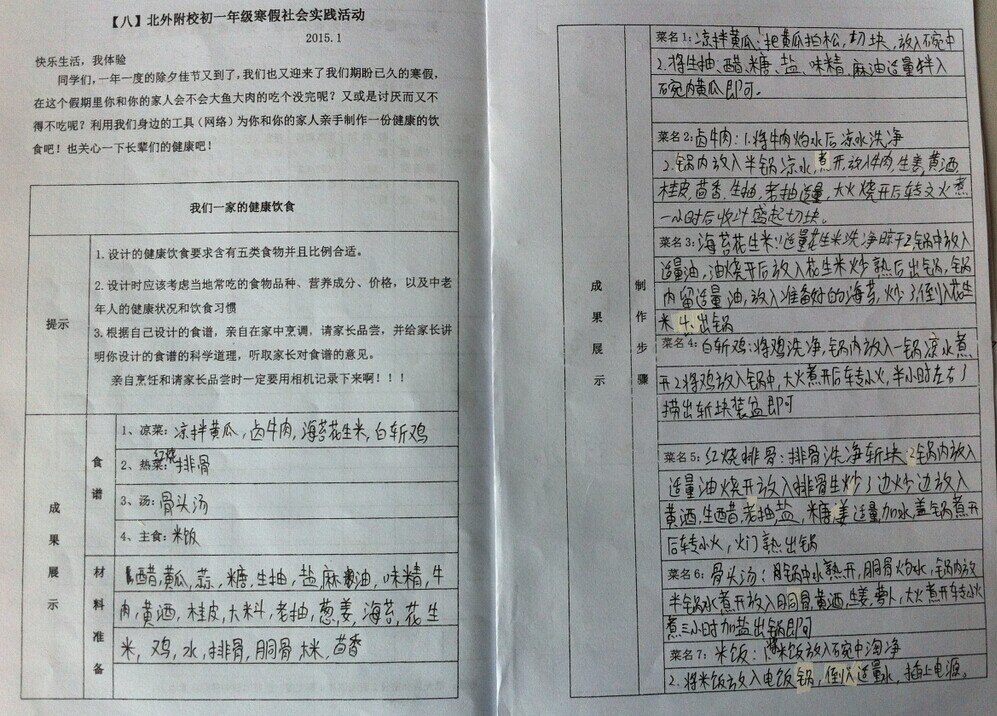 【八】北外附校初一年级寒假社会实践活动
2015.1
快乐生活，我体验
同学们，一年一度的除夕佳节又到了，我们也又迎来了我们期盼已久的寒假，
在这个假期里你和你的家人会不会大鱼大肉的吃个没完呢？又或是讨厌而又不
得不吃呢？利用我们身边的工具（网络）为你和你的家人亲手制作一份健康的饮
食吧！也关心一下长辈们的健康吧！
我们一家的健康饮食
提示
1.设计的健康饮食要求含有五类食物并且比例合适。
2.设计时应该考虑当地常吃的食物品种、营养成分、价格，以及中老
年人的健康状况和饮食习惯
3.根据自己设计的食谱，亲自在家中烹调，请家长品尝，并给家长讲
明你设计的食谱的科学道理，听取家长对食谱的意见。
亲自烹饪和请家长品尝时一定要用相机记录下来啊！！！
成果展示
食谱
1、凉菜：凉拌黄瓜，卤牛肉，海苔花生米，白斩鸡
2、热菜：红烧排骨
3、汤：骨头汤
4、主食：米饭
材料准备
醋，黄瓜，蒜，糖，生抽，盐，麻油，味精，牛
肉，黄酒，桂皮，大料，老抽，葱，姜，海苔，花生
米，鸡，水，排骨，胴骨，米，茴香
成果展示
制作步骤
菜名1：凉拌黄瓜：把黄瓜拍松，切块，放入碗中
2.将生抽、醋、糖、盐、味精、麻油适量拌入
碗内黄瓜即可。
菜名2：卤牛肉：1.将牛肉灼水后凉水洗净
2.锅内放入半锅凉水，煮开，放牛肉，生姜，黄酒
桂皮，茴香，生抽，老抽适量，大火烧开后转文火煮
一小时后收汁盛起切块。
菜名3：海苔花生米：1.适量花生米洗净晾干2.锅中放入
适量油，油烧开后放入花生米炒熟后出锅，锅
内留适量油，放入准备好的海苔，炒了倒入花生
米 出锅
菜名4：白斩鸡：将鸡洗净，锅内放入一锅凉水煮
开2.将鸡放入锅中，大火煮开后车专小火，半小时左右了
捞出斩块装盆即可
菜名5：红烧排骨：排骨洗净斩块 2.锅内放入
适量油烧开放入排骨生炒了边炒边放入
黄酒，生醋，老抽，盐，米糖，姜适量，加水，盖锅煮开
后车专小火，火门熟出锅
菜名6：骨头汤：用锅中水熟开，胴骨灼水，锅内放
半锅水煮开放入胴骨，黄酒，生姜，萝卜，大火煮开车专小火
煮三小时加盐出锅即可
菜名7：米饭：1.将米饭放入碗中淘净
2.将米饭放入电饭锅，倒入适量水，插上电源。